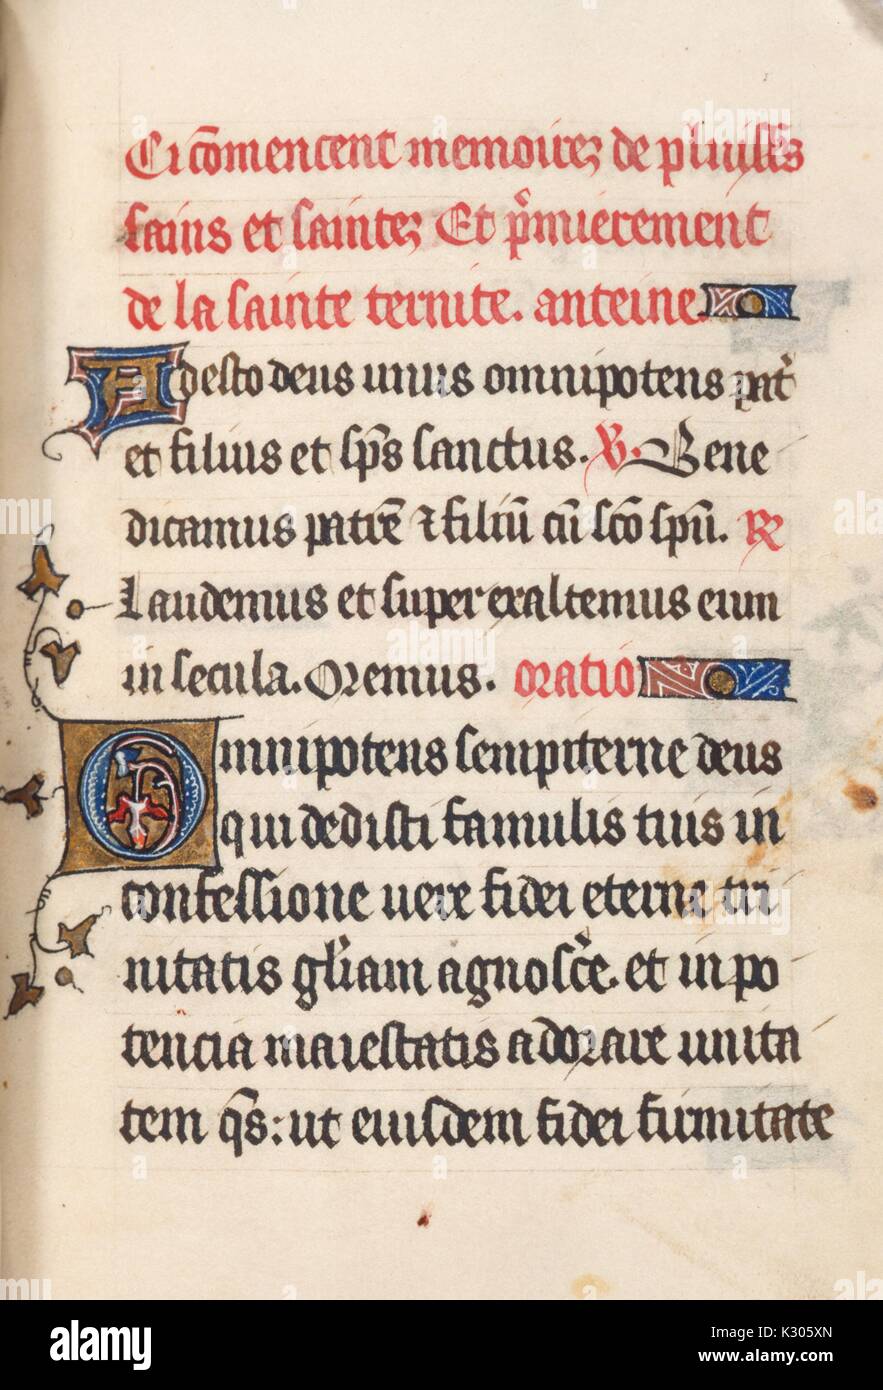 Ci cõmencent memoires de pluisrs
sains et saintes Et p̃mierement
de la sainte ternite. anteine.
Adesto deus unus omnipotens pat̉
et filius et sp̃s sanctus. ℣. Bene
dicamus patrẽ ⁊ filiũ cũ sc̃o sp̃u. ℟
Laudemus et super exaltemus eum
in secula. Oremus. oratio
Omnipotens sempiterne deus
qui dedisti famulis tuis in
confessione vere fidei eterne tri
nitatis gl̃iam agnosc̉e. et in po
tencia maiestatis adorare unita
tem q̃s: ut eiusdem fidei firmitate
alamy
Image ID: K305XN
www.alamy.com